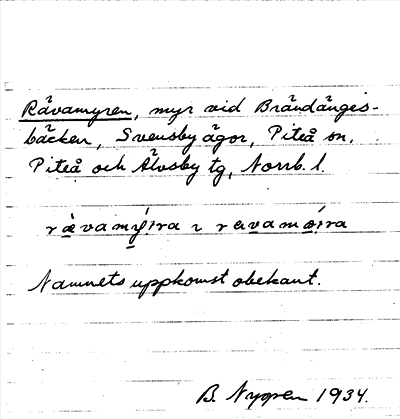 Rävamyren, myr vid Brändänges-
bäcken, Svensby ägor, Piteå sn,
Piteå och Älvsby tg, Norrb. l.
Namnets uppkomst obekant.
B. Nygren 1934.